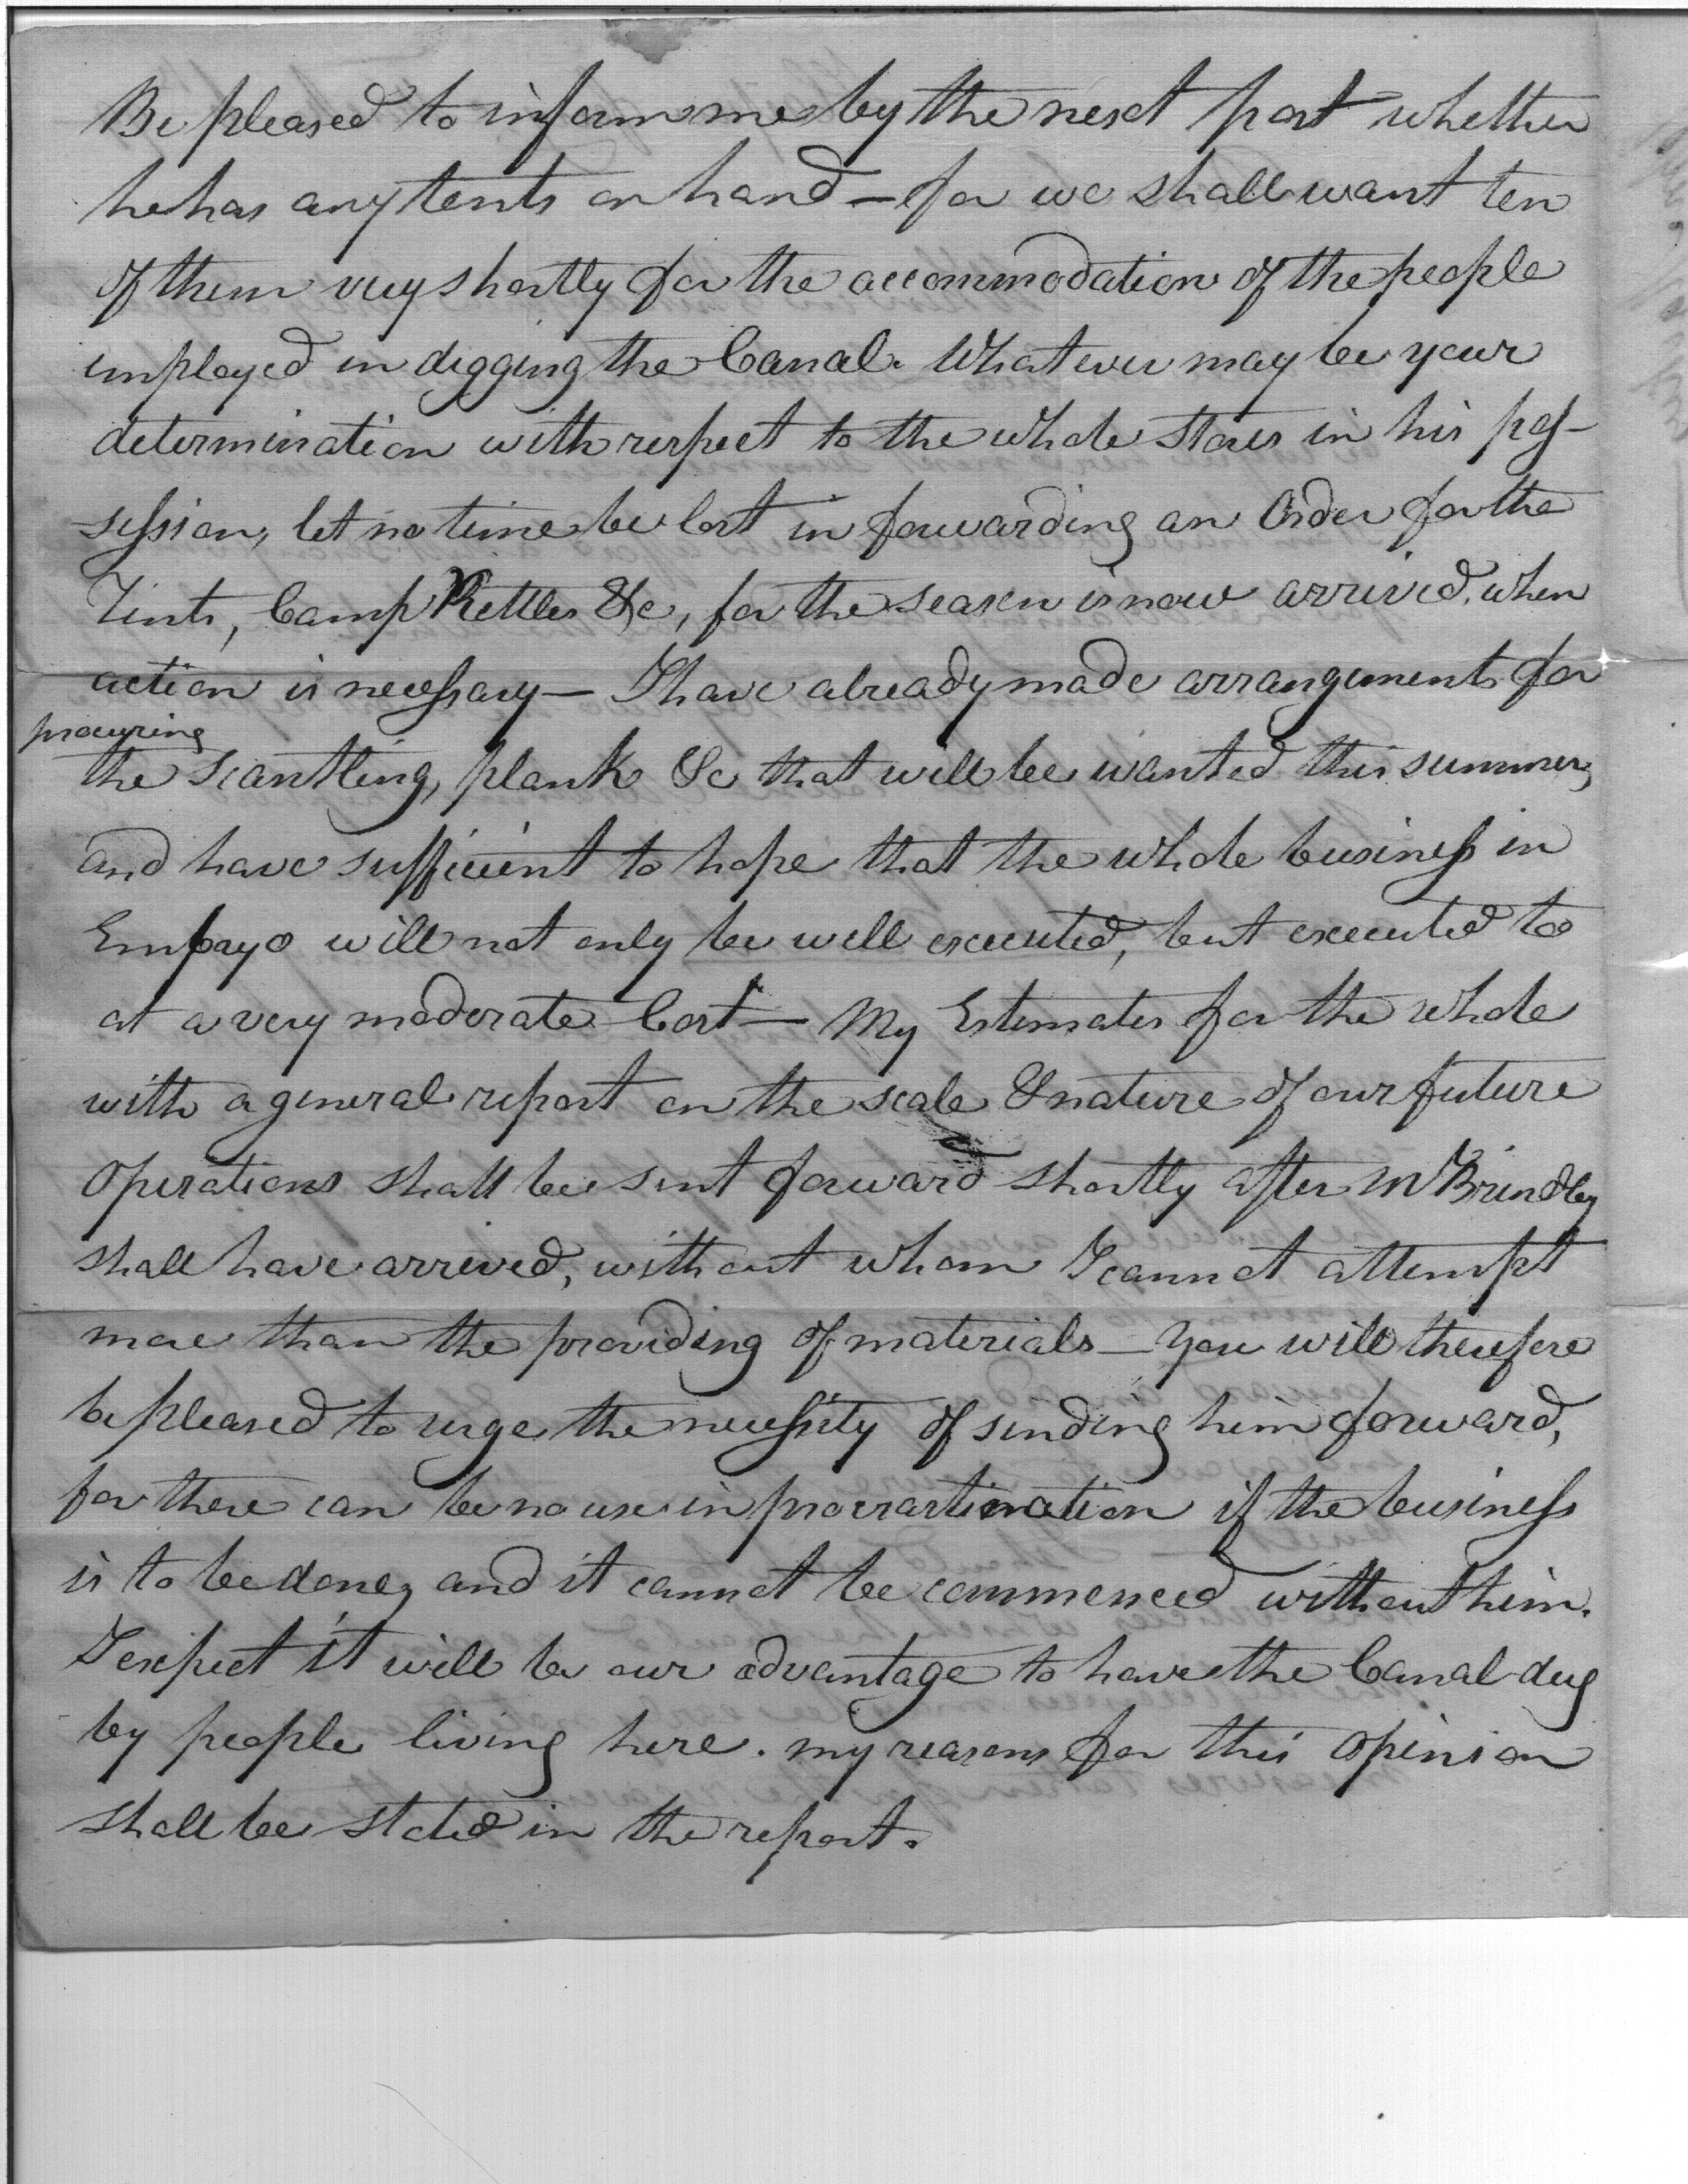 Be pleased to inform me by the next post whether
he has any tents on hand — for we shall want ten
of them very shortly for the accommodation of the people
employed in digging the Canal. Whatever may be your
determination with respect to the whole stores in his pos-
session, let no time be lost in forwarding an Order for the
Tents, Camp Kettles &c, for the season is now arrived, when
action is necessary — I have already made arrangements for
procuring
the scantling, plank &c that will be wanted this summer,
and have sufficient to hope that the whole business in
Embryo will not only be well executed, but executed too
at a very moderate Cost — My Estimates for the whole
with a general report on the scale & nature of our future
Operations shall be sent forward shortly after Mr Brindley
shall have arrived, without whom I cannot attempt
more than the providing of materials — You will therefore
be pleased to urge the necessity of sending him forward,
for there can be no use in procrastination if the business
is to be done, and it cannot be commenced without him.
I expect it will be our advantage to have the Canal dug
by people living here. my reasons for this opinion
shall be stated in the report.